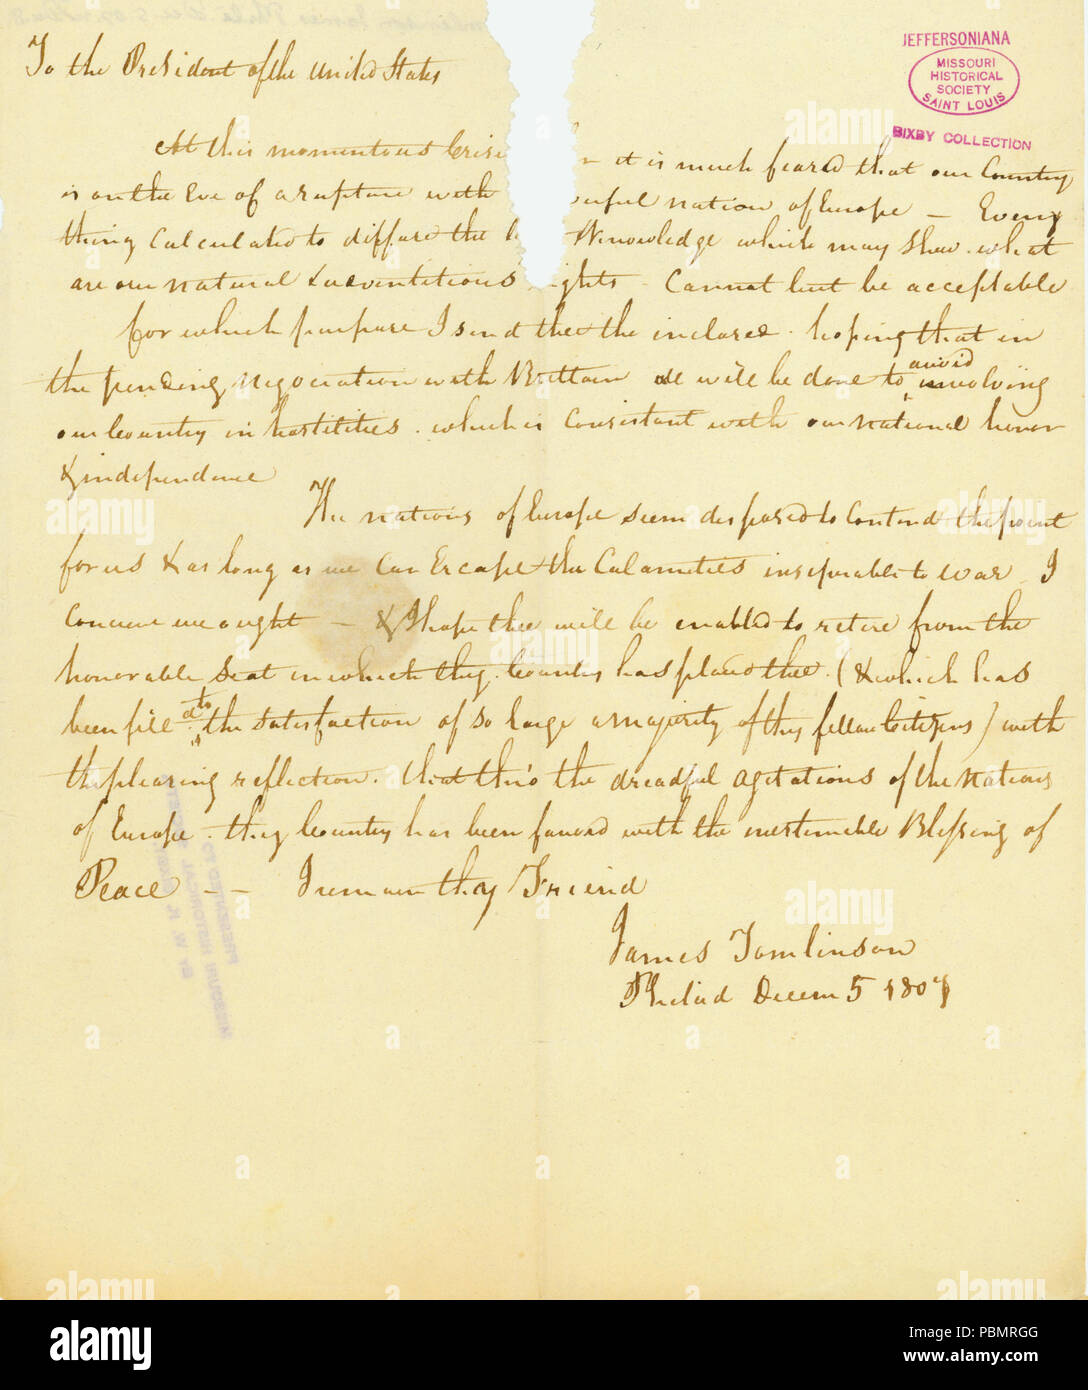 To the President of the United States
JEFFERSONIANA
MISSOURI
HISTORICAL
SOCIETY
SAINT LOUIS
BIXBY COLLECTION
At this momentous Crisi it is much feared that our Country
is on the Eve of a rupture with erful nation of Europe — Every
thing Calculated to diffuse the Knowledge which may shew what
are our natural & ights Cannot but be acceptable
for which purpose I send thee the inclosed. hoping that in
the pending negociation with Brittain all will be done to avoid involving
our Country in hostilities. which is Consistant with our national honor
& independence
The nations of Europe seem disposed to Contend the point
for us & as long as we Can Escape the Calamities inseperable to war I
Conceive we ought — & I hope thee will be enabled to retire from the
honorable seat in which thy Country has placed thee. (& which has
been fill'd to the satisfaction of so large a majority of thy fellow Citizens) with
the pleasing reflection. that thro the dreadful agitations of the Nations
of Europe. thy Country has been favored with the inestimable Blessing of
Peace — — I remain thy Friend
James Tomlinson
Philad Decem 5 1807
alamy
Image ID: PBMRGG
www.alamy.com